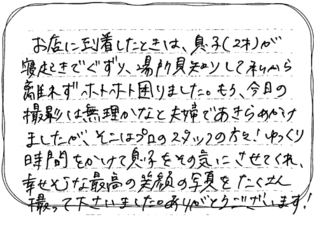 お店に到着したときは、息子(2才)が
寝起きでぐずり、場所見知りして私から
離れずホトホト困りました。もう、今日の
撮影は無理かなと夫婦であきらめかけ
ましたが、そこはプロのスタッフの方々!ゆっくり
時間をかけて息子をその気にさせてくれ、
幸せそうな最高の笑顔の写真をたくさん
撮って下さいました。ありがとうございます!